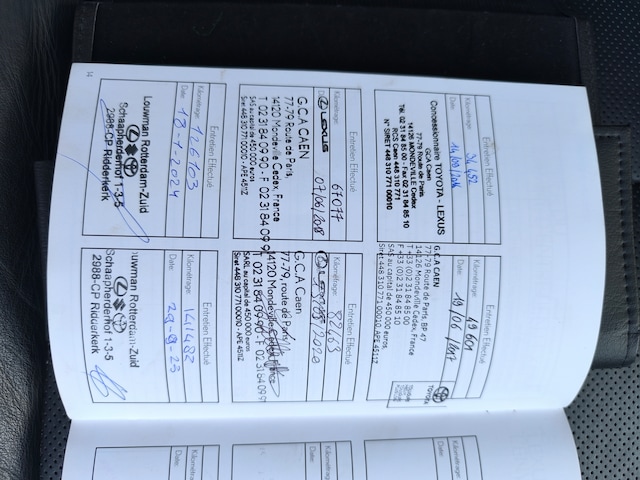 Entretien Effectué
Kilométrage:
Date:
Concessionnaire TOYOTA - LEXUS
GCA Caen
77-79 Route de Paris
14126 MONDEVILLE Cedex
Tél. 02 31 84 85 00 - Fax 02 31 84 85 10
RCS Caen 448 310 771
N° SIRET 448 310 771 00010
Entretien Effectué
Kilométrage: 49 601
Date: 19/06/2017
G.CA CAEN
77-79 Route de Paris, BP 47
14126 Mondeville Cedex, France
T +33 (0)2 31 84 85 00
F +33 (0)2 31 84 85 10
SAS au capital de 450 000 euros
Siret 448 310 771 00010 APE 4511Z
TOYOTA
Entretien Effectué
Kilométrage: 67077
LEXUS 07/06/2018
G.CA CAEN
77-79 Route de Paris
14120 Mondeville Cedex, France
T 02 31 84 09 90 - F 02 31 84 09 91
SAS au capital de 450 000 euros
Siret 448 310 771 00010 - APE 4511Z
Entretien Effectué
Kilométrage: 82663
G.CA Caen
77-79, route de Paris
14120 Mondeville Cedex, France
T 02 31 84 09 90 - F 02 31 84 09 91
SARL au capital de 450 000 euros
Siret 448 310 771 00010 - APE 4511Z
Entretien Effectué
Kilométrage: 126103
Date: 18-1-2024
Louwman Rotterdam-Zuid
Schaapherderhof 1-3-5
2988-CP Ridderkerk
Entretien Effectué
Kilométrage: 141482
Date:
ouwman Rotterdam-Zuid
Schaapherderhof 1-3-5
2988-CP Ridderkerk
14
Kilométrage:
Date:
Kilométrage:
Date:
Kilométrage:
Date: